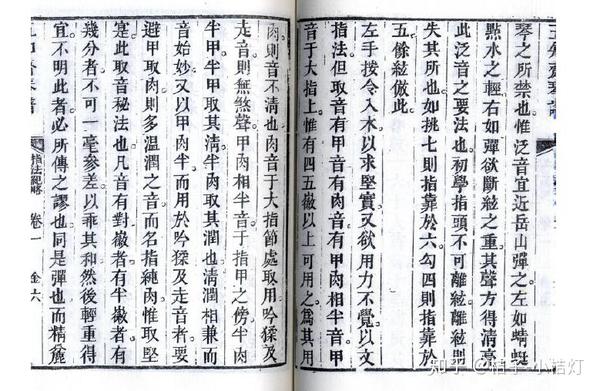 琴之所禁也惟泛音宜近岳山彈之左如蜻蜓
點水之輕右如彈欲斷絃之重其聲方得清亮。
此泛音之要法也。初學指頭不可離絃離則
失其所也如挑七則指靠於六勾四則指靠於
五餘絃倣此。
左手按令入木以求堅實又欲用力不覺以文
指法但取音有甲音有肉音有甲肉相半音甲
音于大指上惟有四五徽以上可用之為其用
肉則音不清也肉音于大指節處取用吟猱及
走音則無煞聲甲肉相半音于指甲之傍半肉
半甲甲取其清肉取其潤也清潤相兼而
音始妙又以甲肉半而用於吟猱及走音者要
避甲取肉則多溫潤之音而名指純肉惟取堅
寔此取音秘法也凡音有對徽者有半徽者有
幾分者不可一毫參差以乖其和然後輕重得
宜不明此者必所傳之謬也同是彈也而精麄
卷一 金六
知乎 @桔子-小桔灯